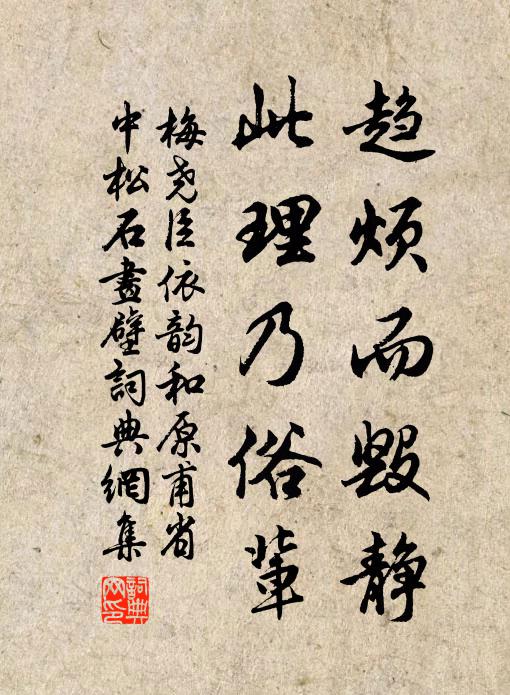 趋烦而毁静
此理乃俗輩
梅尧臣依韵和原甫省
中松石畫壁詞典網集
詞典網印